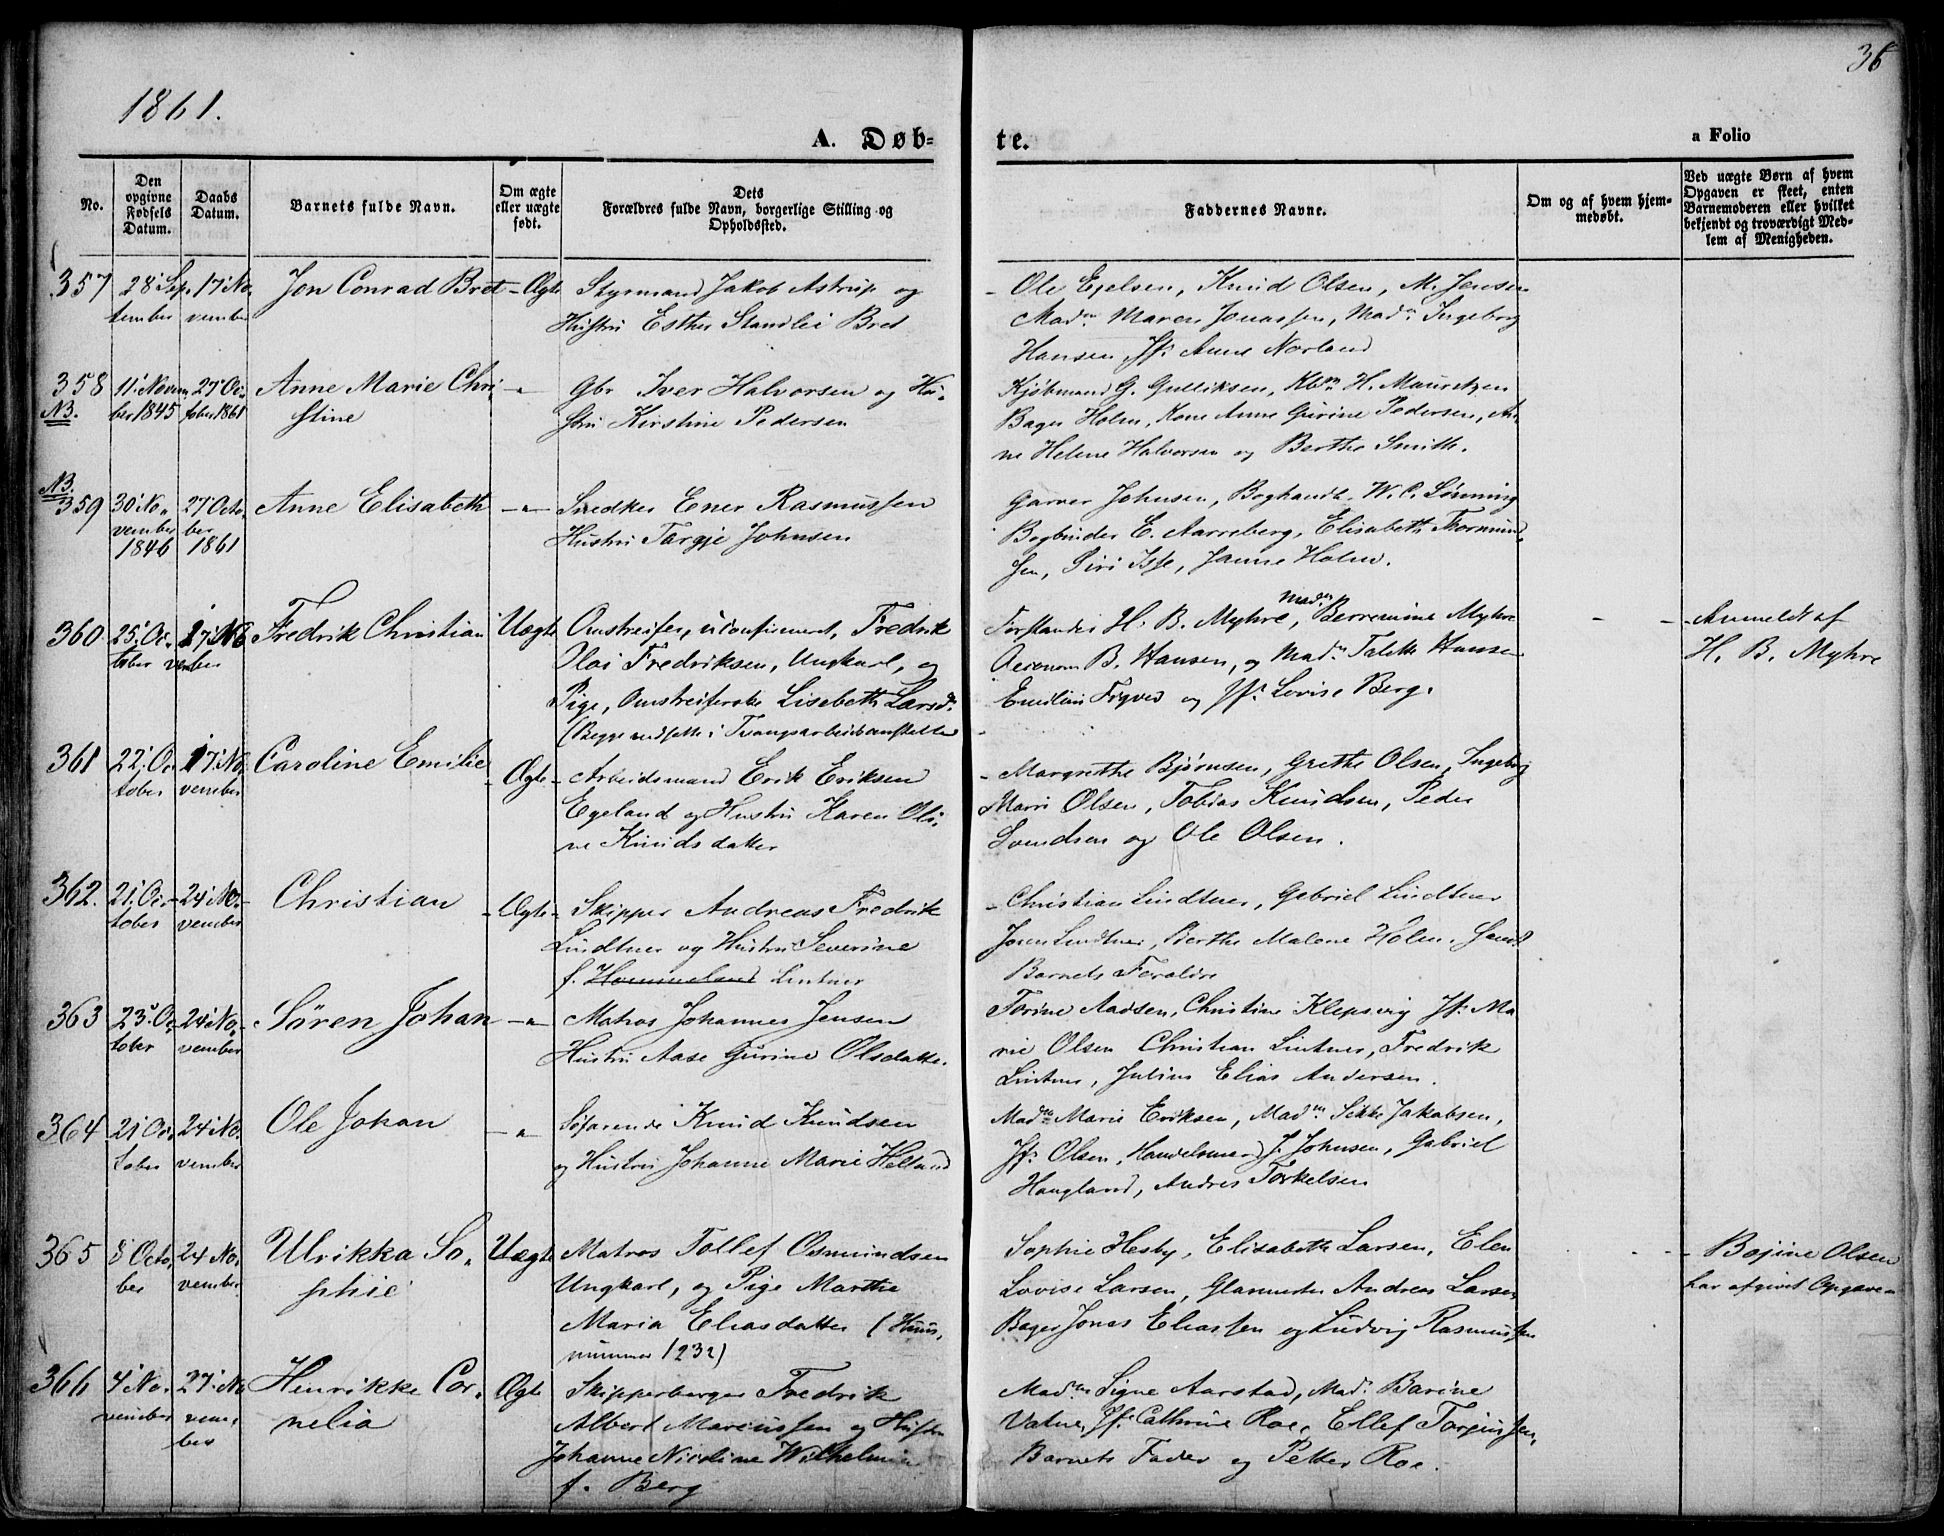 36
1861.
A. Døb=
te.
a Folio
No.
Den
opgivne
Fødsels
Datum.
Daabs
Datum.
Barnets fulde Navn.
Om ægte
eller uægte
født.
Dets
Forældres fulde Navn, borgerlige Stilling og
Opholdssted.
Faddernes Navne.
Om og af hvem hjem-
medøbt.
Ved uægte Børn af hvem
Opgaven er skeet, enten
Barnemoderen eller hvilket
bekjendt og troværdigt Med-
lem af Menigheden.
357 28' Sep. 17' No. Jon Conrad Bret - Ægte Styrmand Jakob Astrup og
tember vember Hustru Esther Standlei Bret
- Ole Egelsen, Knud Olsen, M. Jensen
Mad.m Maren Jonassen, Mad.m Ingeborg
Hansen, Jf. Anne Norland
358 11' Novem 27' Oc. Anne Marie Chri - " Gbr Iver Halvorsen og Hu-
NB. ber 1845 tober 1861 stine stru Kirstine Pedersen
Kjøbmand G. Gulliksen, Kbm. H. Mauritzen
Bager Holm, Kone Anne Gurine Pedersen, An-
ne Helene Halvorsen og Berthe Smith.
NB.
359 30' No. 27' Octo. Anne Elisabeth - " - Snedker Ener Rasmussen
vember ber Hustru Targje Johnsen
1846 1861
Garver Johnsen, Boghandl. W. C. Lønning
Bogbinder E. Aarreberg, Elisabeth Thormund-
sen, Siri Isse, Janne Holm.
360. 25' Oc. 17' No Fredrik Christian Uægte Omstreifer, uconfirmert, Fredrik
tober vember Oloi Fredriksen, Ungkarl, og
Pige, Omstreiferske Lisebeth Larsd.
(Begge indsatte i Tvangsarbeidsanstalten
Forstander H. B. Myhre, Mad.m Berremine Myhre
Oeconom B. Hansen, og Mad.m Talette Hansen
Emilius Tygved og Jf. Lovise Berg.
- - Anmeldt af
H. B. Myhre
361 22' Oc. 17' No. Caroline Emilie - Ægte - Arbeidsmand Erik Eriksen
tober vember Egeland og Hustru Karen Oli-
ne Knudsdatter
- Margrethe Bjørnsen, Grethe Olsen, Ingeborg
Marie Olsen, Tobias Knudsen, Peder
Svendsen og Ole Olsen.
362. 21' Oc.- 24' No.- Christian - Ægte - Skipper Andreas Fredrik
tober vember Lindtner og Hustru Severine
f. Hommeland Lintner
- Christian Lindtner, Gabriel Lindtner
Joren Lindtner, Berthe Malene Holm. Samt
Barnets Forældre
363 23' Oc- 24' No.- Søren Johan - " - Matros Johannes Jensen
tober vember Hustru Aase Gurine Olsdatter.
Torine Aadsen, Christine Klepsvig Jf. Ma
rie Olsen Christian Lintner, Fredrik
Lintner, Julius Elias Andersen.
364 21' Oc. 24' No. Ole Johan - " Søfarende Knud Knudsen
tober vember og Hustru Johanne Marie Helland
Mad.m Marie Eriksen, Mad.m Sikke Jakobsen,
Jf. Olsen, Handelsmand J. Johnsen, Gabriel
Haugland, Andres Torkelsen
365 8' Octo. 24' No. Ulrikka So- Uægte Matros Tollef Osmundsen
ber vember phie Ungkarl, og Pige Marthe
Maria Eliasdatter (Huus-
nummer 1232)
Sophie Hesby, Elisabeth Larsen, Elen
Lovise Larsen, Glarmester Andreas Larsen
Bager Jonas Eliassen og Ludvig Rasmussen
- - - Bojine Olsen
har afgivet Opgave-
366 4' No. 27' No Henrikke Cor- Ægte Skipperborger Fredrik
vember vem- nelia Albert Marcussen og Hustru
ber Johanne Nicoline Wilhelmine
f. Berg
Mad.m Signe Aarstad, Mad. Barine
Vatne, Jf. Cathrine Roe, Ellef Torjussen,
Barnets Fader og Petter Roe.